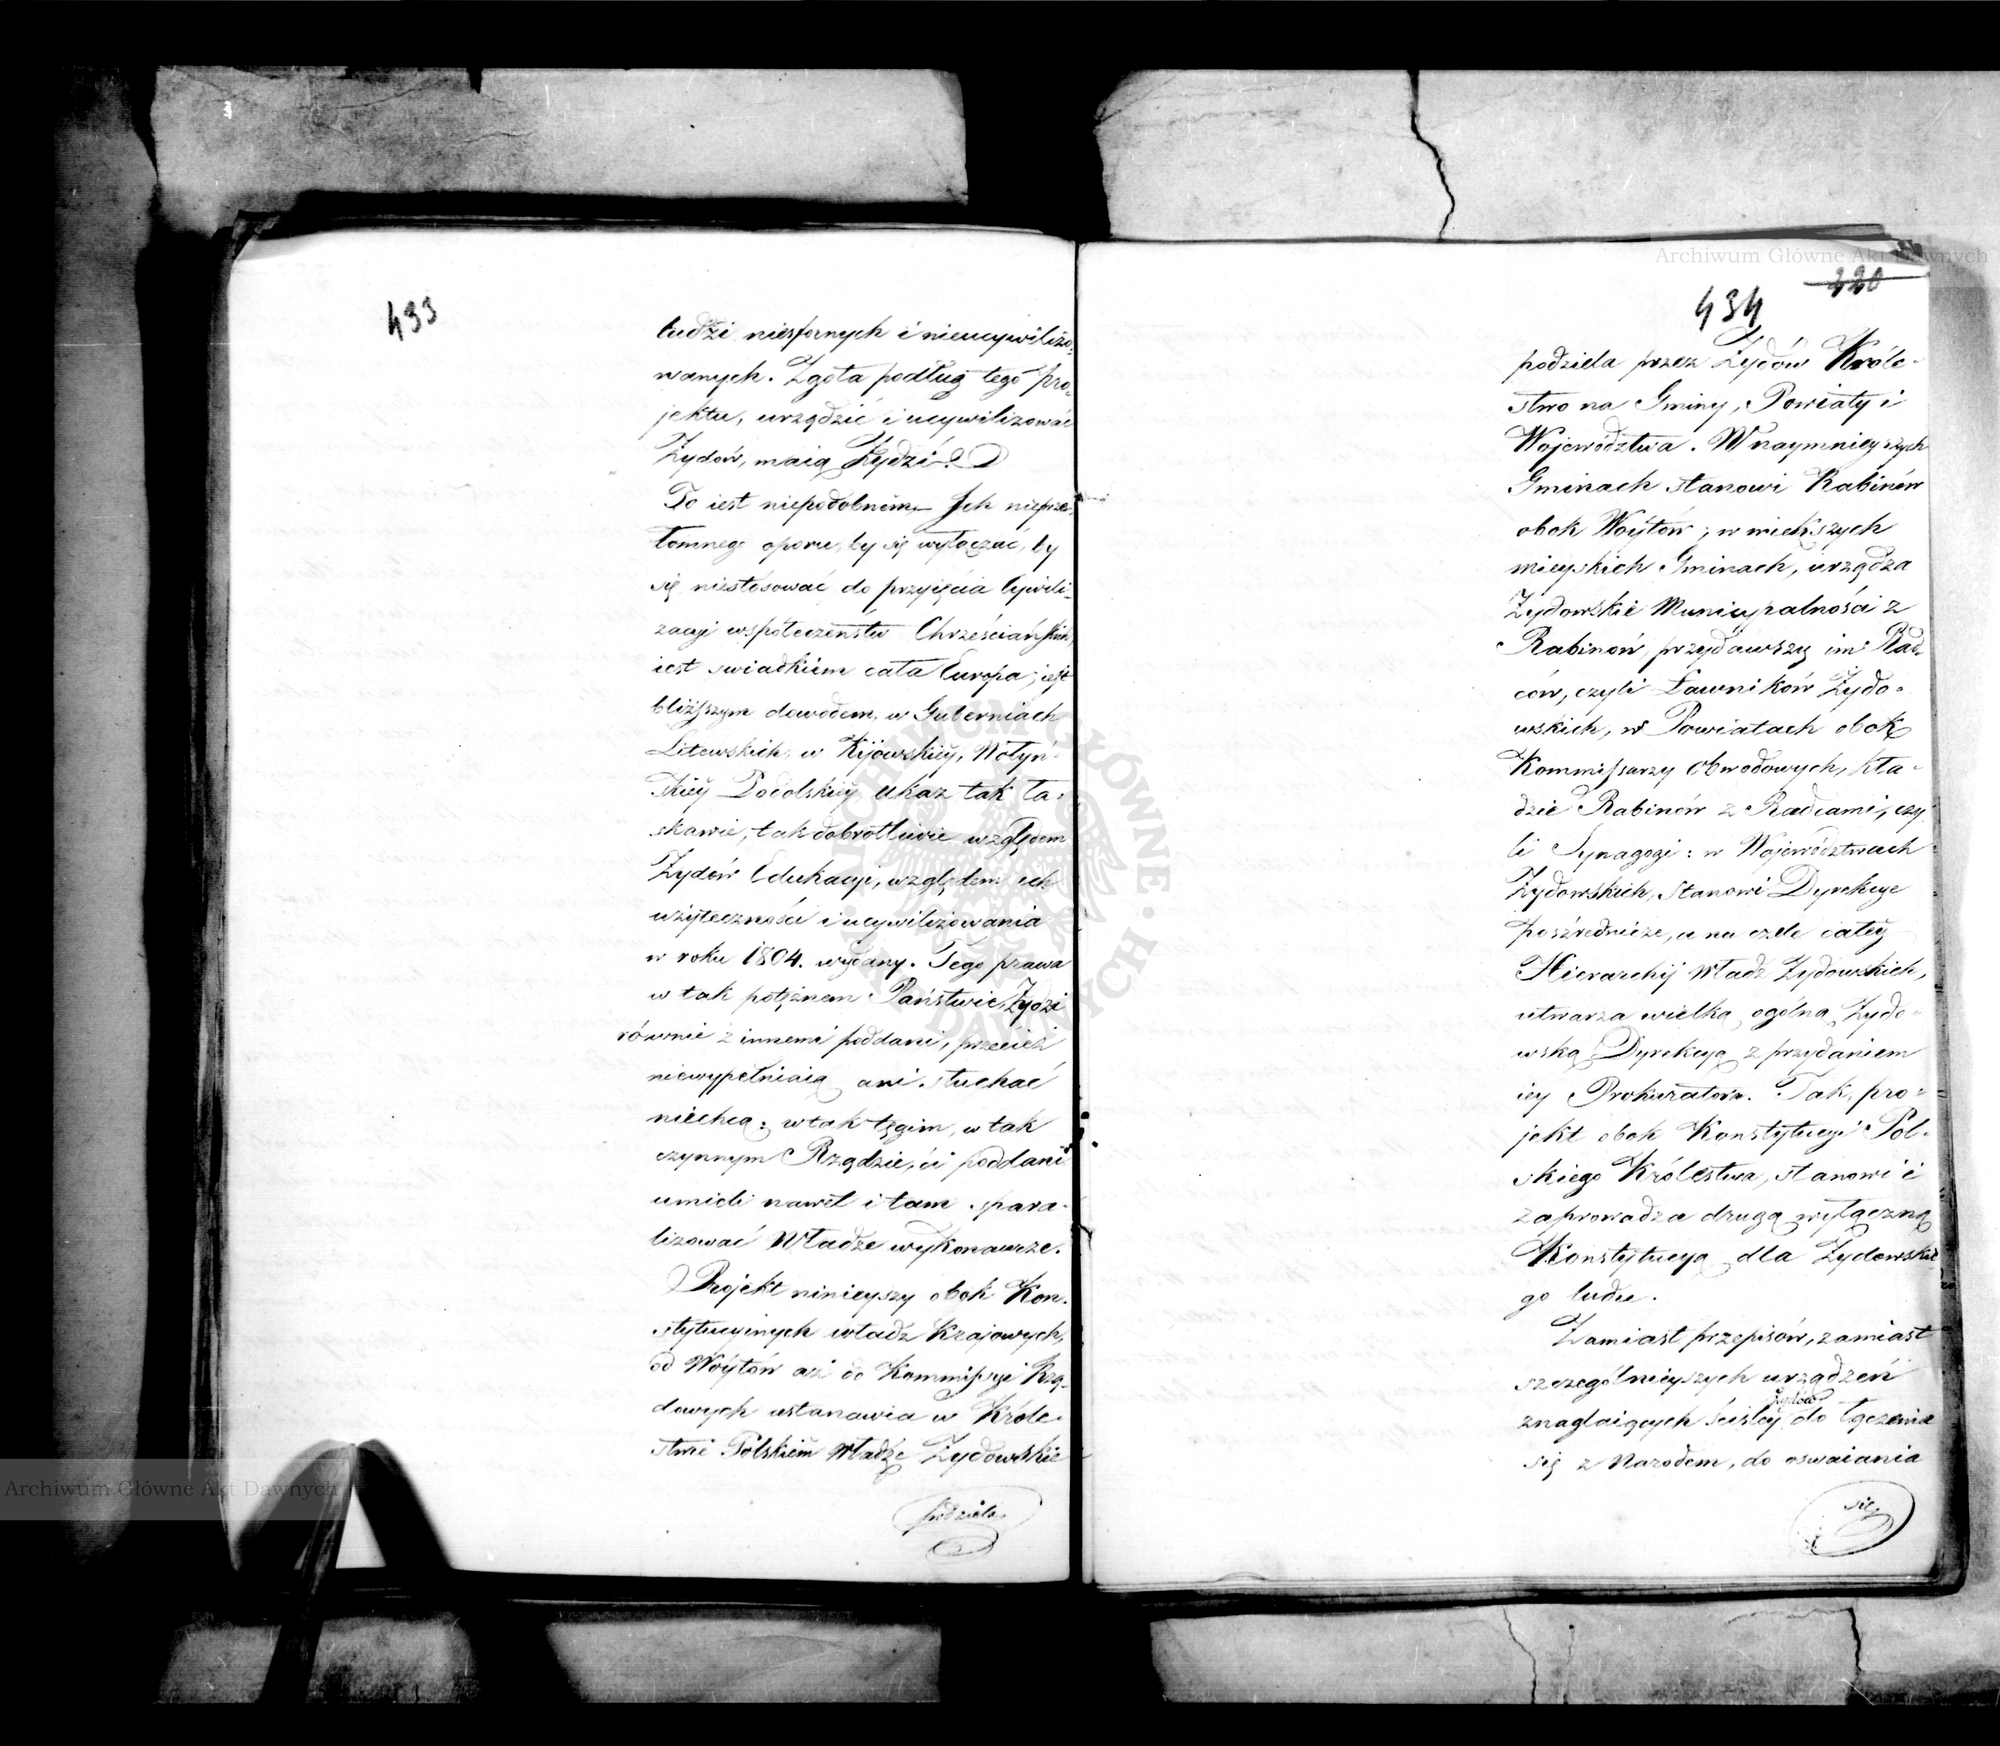 433
ludzi niesfornych i nieucywilizo-
wanych. Zgoła podług tego pro-
jektu, urządzić i ucywilizować
Żydów, maią Żydzi?
To iest niepodobném. Ich nieprze-
łomnego oporu, by się wyłączać, by
się niestosować do przyięcia Cywili-
zacyi współeczeństw Chrześciańskich,
iest swiadkiem cała Europa; iest
bliższym dowodem, w Guberniach
Litewskich, w Kijowskiéy, Wołyń-
skiéy Podolskiéy, ukaz tak ła-
skawie, tak dobrotliwie względem
Żydów Edukacyi, względem ich
użyteczności i ucywilizowania
w roku 1804. wydany. Tego prawa
w tak potężnem Państwie, Żydzi
równie z innemi poddani, przecież
niewypełniaią ani słuchać
niechcą: w tak tęgim, w tak
czynnym Rządzie, ci poddani
umieli nawet i tam spara-
liżować Władze wykonawcze.
Projekt ninieyszy obok Kon-
stytucyinych władz Krajowych,
od Woytów aż do Kommissyi Rzą-
dowych ustanawia w Króle-
stwie Polskiém Władze Żydowskie
podziela
220
434
podziela przez Żydów Króle-
stwo na Gminy, Powiaty i
Województwa. W naymnieyszych
Gminach stanowi Rabinów
obok Woytów; w większych
mieyskich Gminach, urządza
Żydowskie Municypalności z
Rabinów, przydawszy im Rad-
ców, czyli Ławników Żydo-
wskich, w Powiatach obok
Kommissarzy Obwodowych, kła-
dzie Rabinów z Radcami, czy-
li Synagogi: w Województwach
Żydowskich, stanowi Dyrekcye
pośrednicze, a na czele całéy
Hierarchij Władz Żydowskich,
utwarza wielką ogólną Żydo-
wską Dyrekcyą z przydaniem
iey Prokuratora. Tak, pro-
jekt obok Konstytucyi Pol-
skiego Królestwa, stanowi i
zaprowadza drugą wyłączną
Konstytucyą dla Żydowskie
go ludu.
Zamiast przepisów, zamiast
szczególnieyszych urządzeń
Żydów
znaglaiących ściśléy do łączenia
się z Narodem, do oswaiania
się
Archiwum Główne Akt Dawnych
Archiwum Główne Akt Dawnych